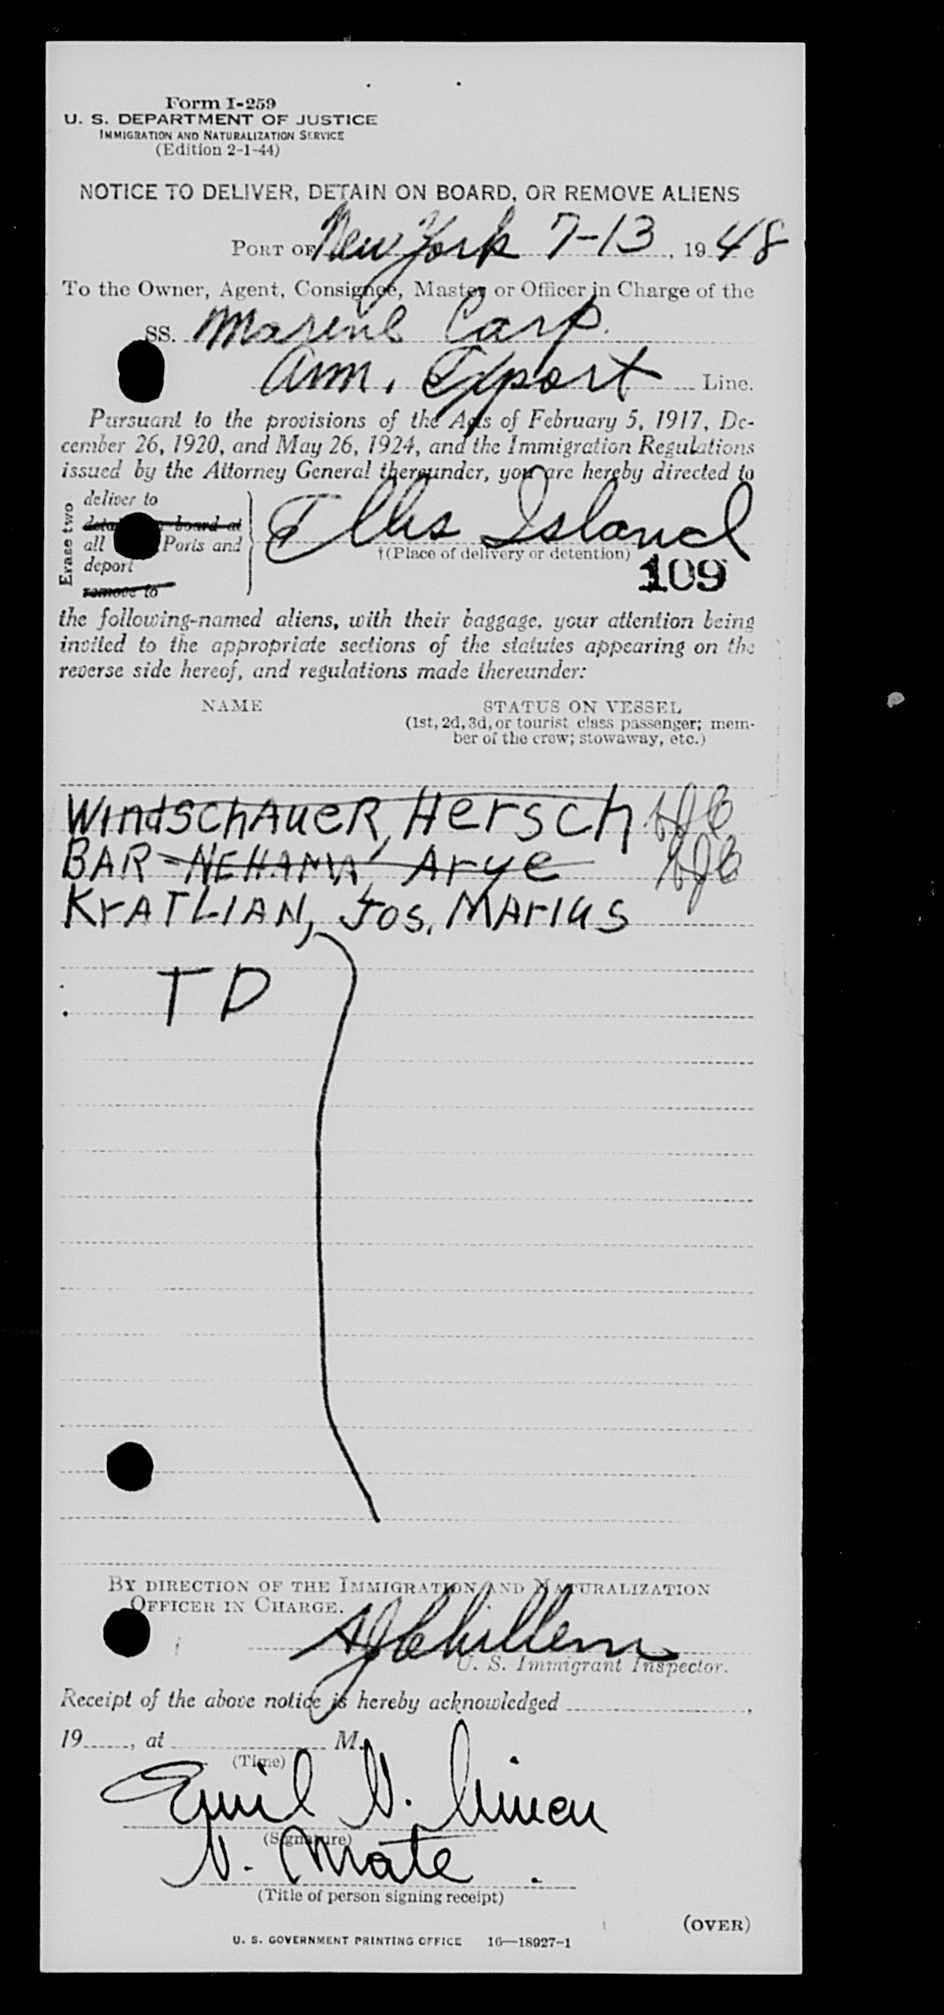 Form I-259
U. S. DEPARTMENT OF JUSTICE
IMMIGRATION AND NATURALIZATION SERVICE
(Edition 2-1-44)
NOTICE TO DELIVER, DETAIN ON BOARD, OR REMOVE ALIENS
PORT OF New York 7-13, 1948
To the Owner, Agent, Consignee, Master or Officer in Charge of the
SS. Marine Carp.
Am. Export Line.
Pursuant to the provisions of the Acts of February 5, 1917, De-
cember 26, 1920, and May 26, 1924, and the Immigration Regulations
issued by the Attorney General thereunder, you are hereby directed to
Erase two
deliver to
board at
all Ports and
deport
remove to
Ellis Island
†(Place of delivery or detention)
109
the following-named aliens, with their baggage, your attention being
invited to the appropriate sections of the statutes appearing on the
reverse side hereof, and regulations made thereunder:
NAME STATUS ON VESSEL
(1st, 2d, 3d, or tourist class passenger; mem-
ber of the crew; stowaway, etc.)
WindSCHAUER, Hersch
BAR-NEHAMA, Arye
KrATLIAN, Jos. MArIUS
TD
BY DIRECTION OF THE IMMIGRATION AND NATURALIZATION
OFFICER IN CHARGE.
U. S. Immigrant Inspector.
Receipt of the above notice is hereby acknowledged ,
19 , at M.
(Time)
Emil
(Signature)
Mate.
(Title of person signing receipt)
(OVER)
U. S. GOVERNMENT PRINTING OFFICE 16—18927-1